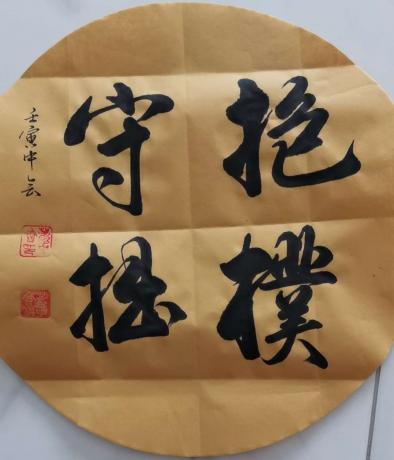 抱撲
守拙
壬寅中云